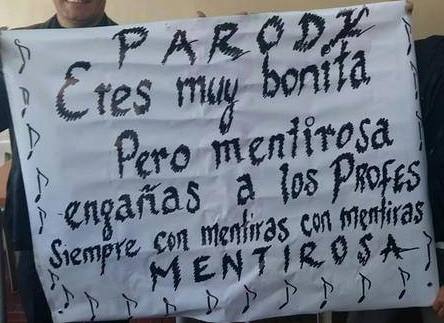 PARODY
Eres muy bonita
Pero mentirosa
engañas a los PROFES
Siempre con mentiras con mentiras
MENTIROSA